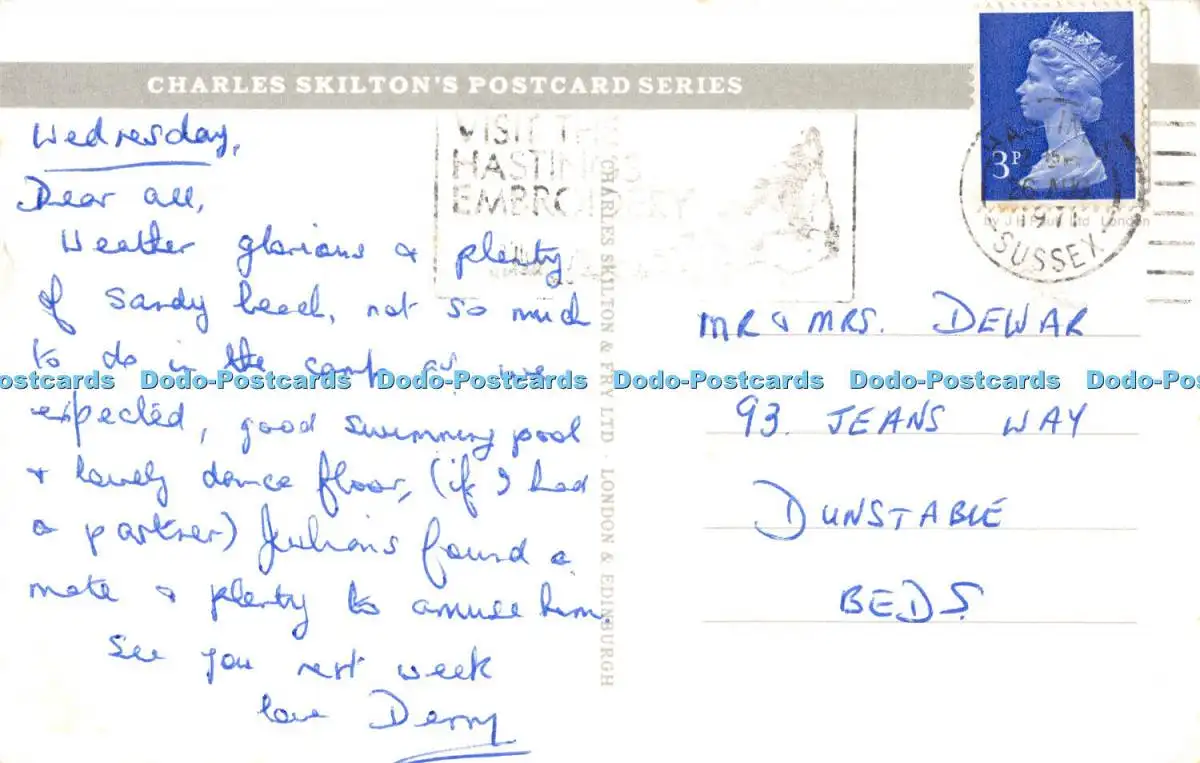 CHARLES SKILTON'S POSTCARD SERIES
Wednesday,
Dear all,
Weather glorious & plenty
of sandy beach, not so much
to do in the camp as we
expected, good swimming pool
& lovely dance floor, (if I had
a partner) Julians found a
mate & plenty to amuse him.
See you next week
love Derry
VISIT THE
HASTINGS
EMBROIDERY
CHARLES SKILTON & FRY LTD · LONDON & EDINBURGH
3P
26 AUG
SUSSEX
Ltd London
MR & MRS. DEWAR
93. JEANS WAY
DUNSTABLE
BEDS.
ostcards Dodo-Postcards Dodo-Postcards Dodo-Postcards Dodo-Postcards Dodo-Pos